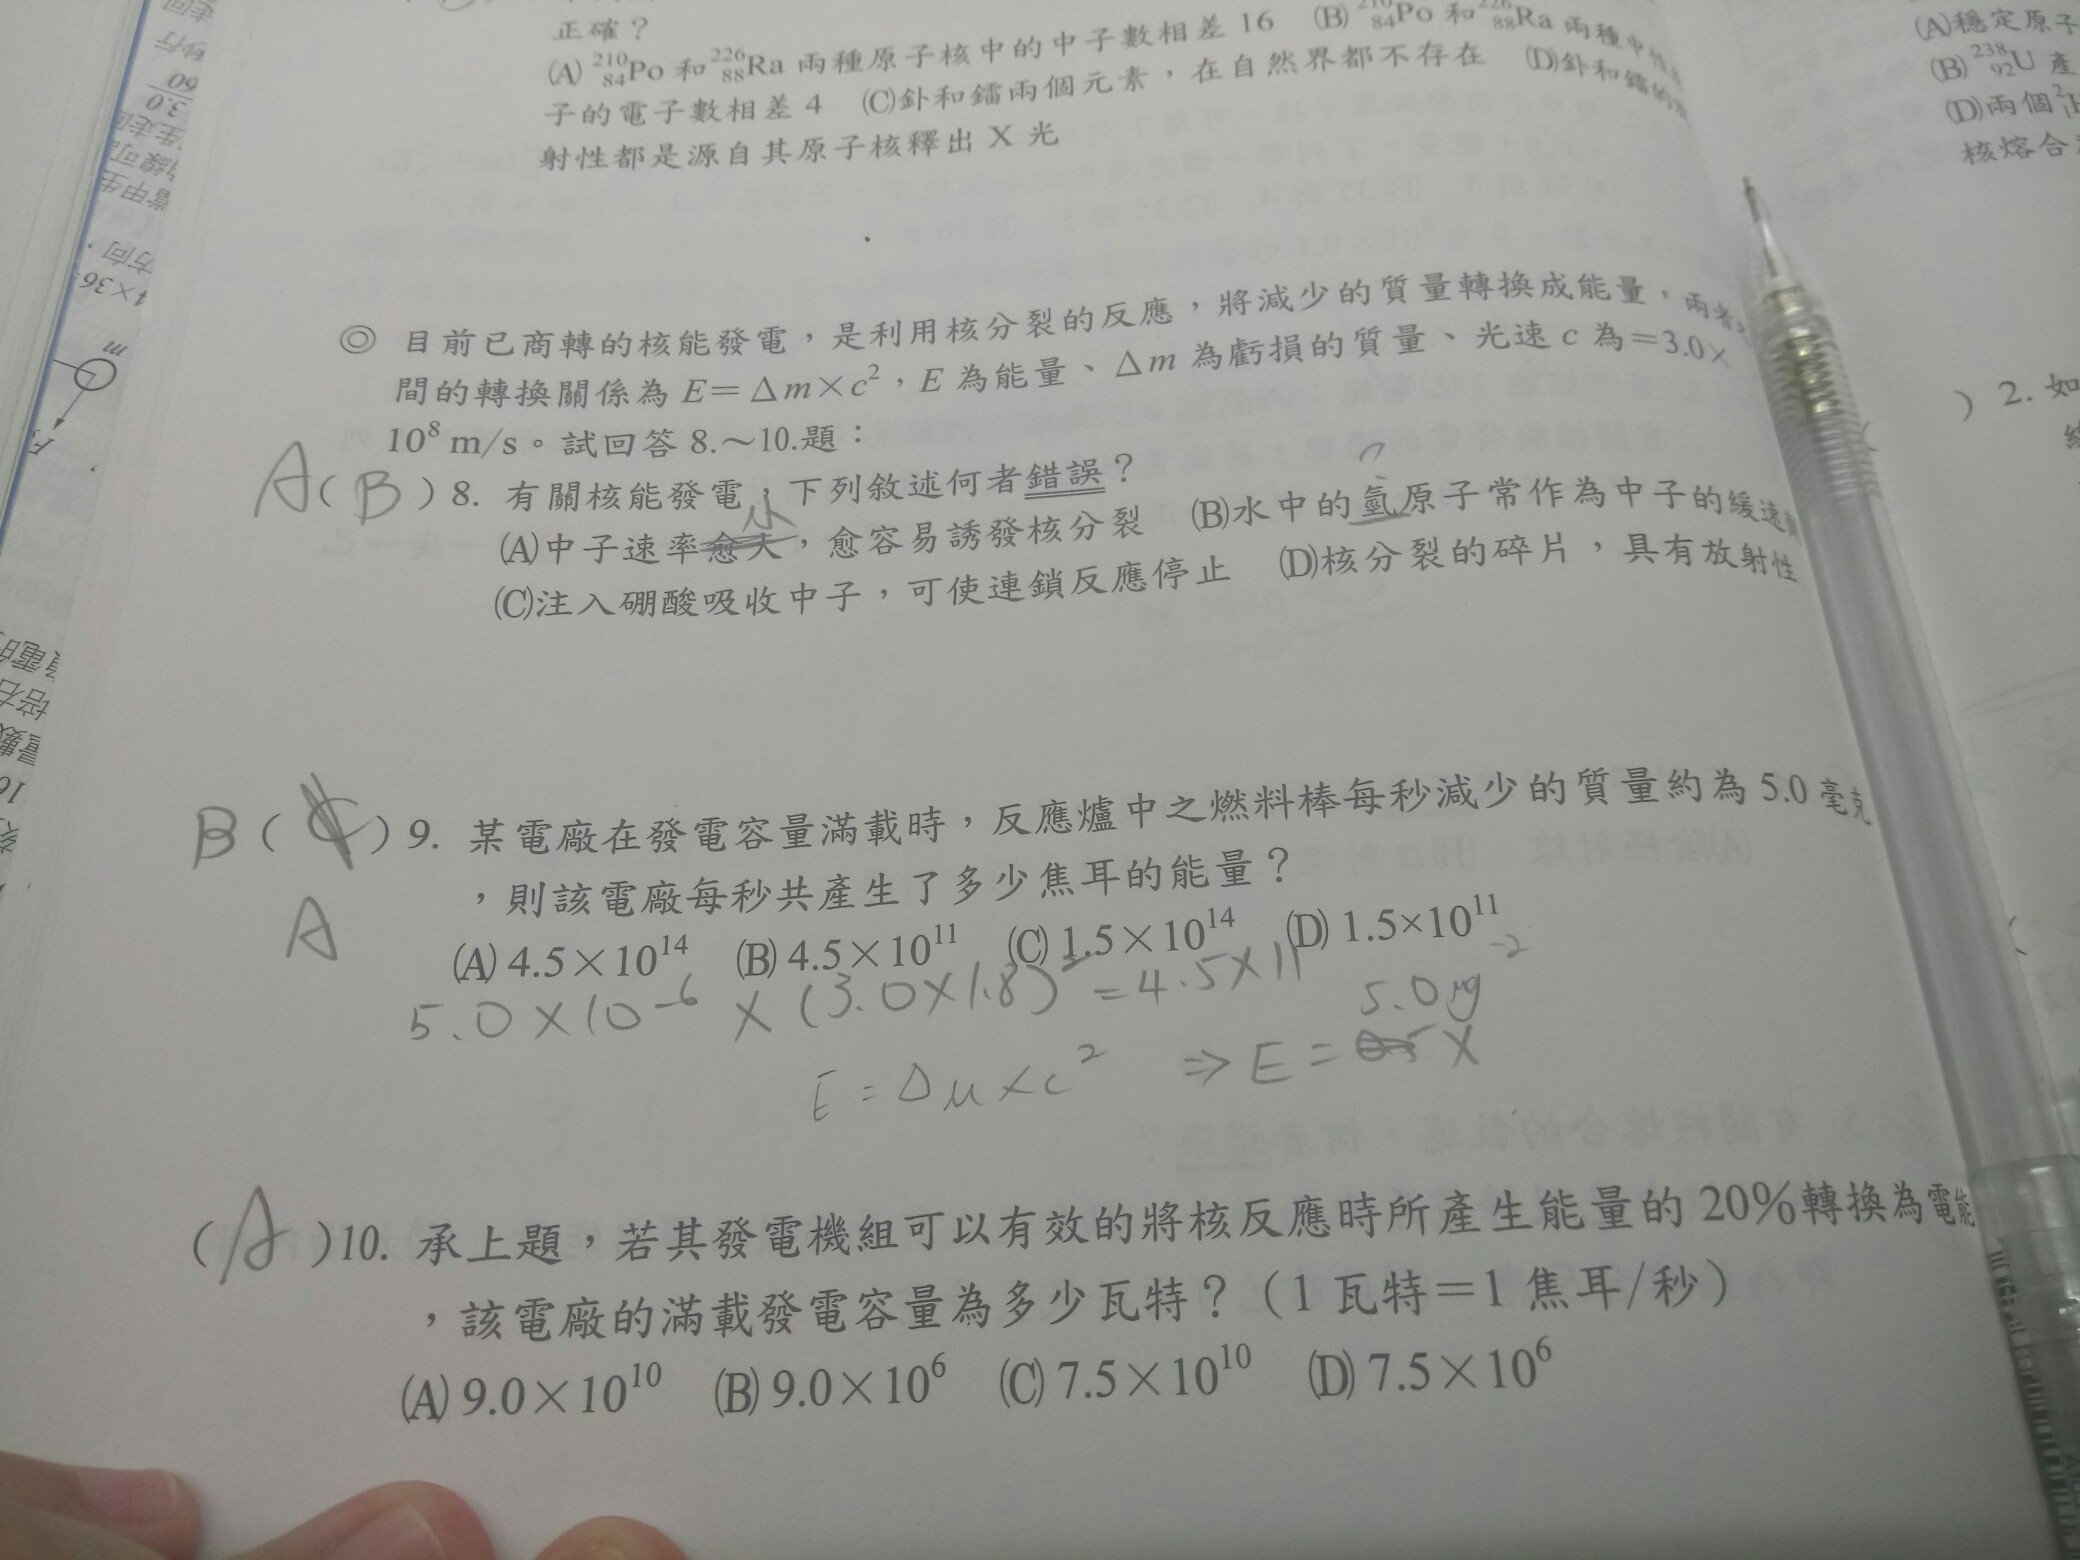 正確？
(A) ²¹⁰₈₄Po 和 ²²⁶₈₈Ra 兩種原子核中的中子數相差 16 (B) ²¹⁰₈₄Po 和 ²²⁶₈₈Ra 兩種中性
子的電子數相差 4 (C)釙和鐳兩個元素，在自然界都不存在 (D)釙和鐳的
射性都是源自其原子核釋出 X 光
◎ 目前已商轉的核能發電，是利用核分裂的反應，將減少的質量轉換成能量，兩者
間的轉換關係為 E＝Δm×c²，E 為能量、Δm 為虧損的質量、光速 c 為＝3.0×
10⁸ m/s。試回答 8.～10.題：
A ( B ) 8. 有關核能發電，下列敘述何者錯誤？
小
(A)中子速率愈大，愈容易誘發核分裂 (B)水中的氫原子常作為中子的緩速
(C)注入硼酸吸收中子，可使連鎖反應停止 (D)核分裂的碎片，具有放射性
B ( C ) 9. 某電廠在發電容量滿載時，反應爐中之燃料棒每秒減少的質量約為 5.0 毫克
，則該電廠每秒共產生了多少焦耳的能量？
A
(A) 4.5×10¹⁴ (B) 4.5×10¹¹ (C) 1.5×10¹⁴ (D) 1.5×10¹¹
5.0×10⁻⁶ × (3.0×1.8)² = 4.5×11
-2
5.0
E = Δm×c² ⇒ E = ×
( A )10. 承上題，若其發電機組可以有效的將核反應時所產生能量的 20%轉換為電能
，該電廠的滿載發電容量為多少瓦特？（1 瓦特＝1 焦耳/秒）
(A) 9.0×10¹⁰ (B) 9.0×10⁶ (C) 7.5×10¹⁰ (D) 7.5×10⁶
(A)穩定原子
(B) ²³⁸₉₂U 產
(D)兩個
核熔合
) 2. 如